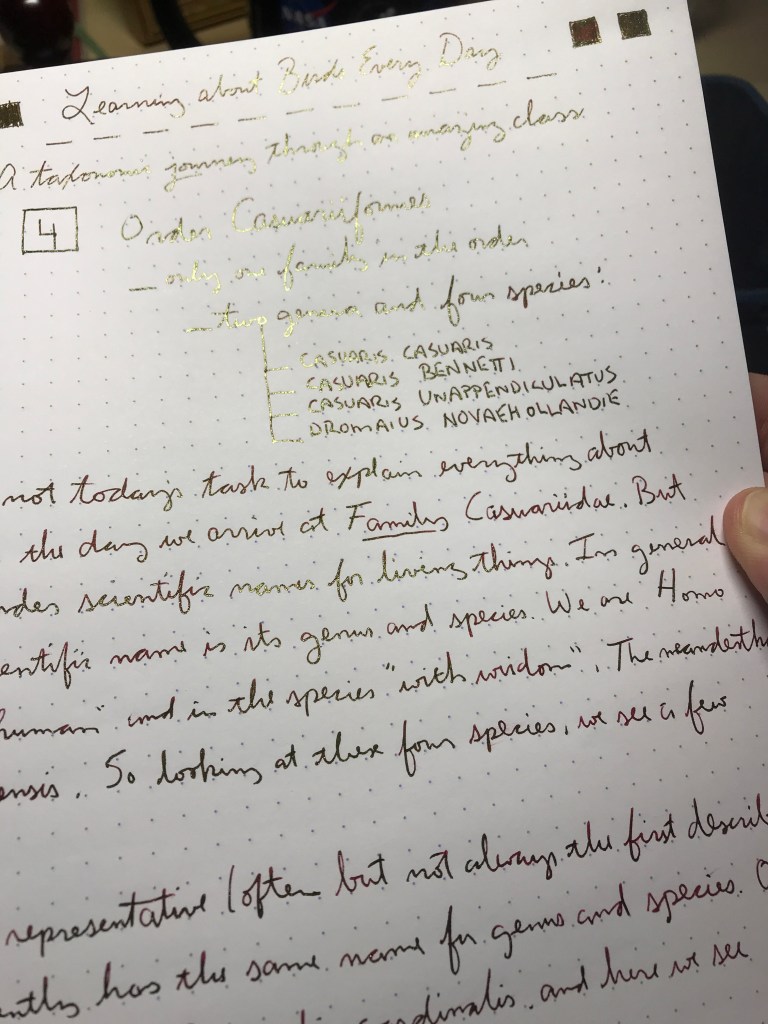 NASA
Learning about Birds Every Day
A taxonomic journey through an amazing class
4 Order Casuariiformes
— only one family in the order
— two genera and four species:
CASUARIS CASUARIS
CASUARIS BENNETTI
CASUARIS UNAPPENDICULATUS
DROMAIUS NOVAEHOLLANDIE
not todays task to explain everything about
the day we arrive at Family Casuariidae. But
scientific names for living things. In general
entific name is its genus and species. We are Homo
"human" and in the species "with wisdom". The neanderth
ensis. So looking at these four species, we see a few
representative (often but not always the first describ
ently has the same name for genus and species.
cardinalis, and here we see